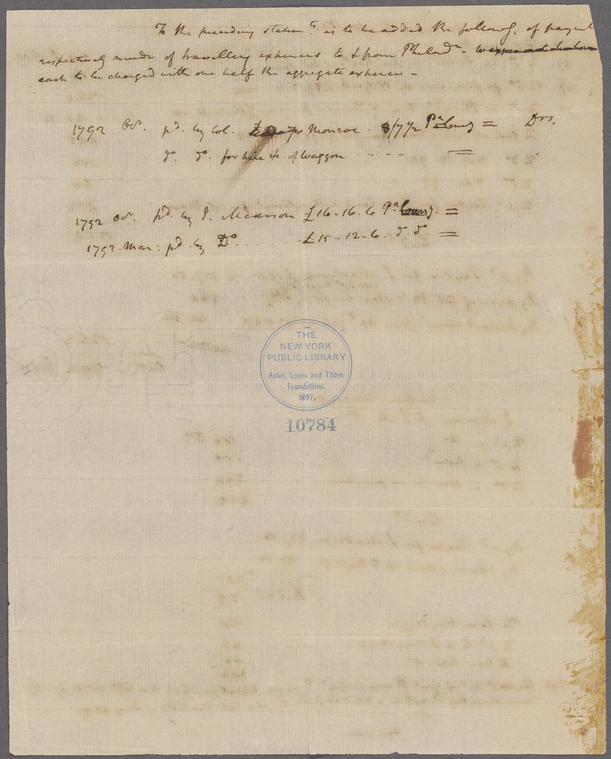 To the preceding statemt. is to be added the followg. of paymts
respectively made of travelling expences to & from Philada.
each to be charged with one half the aggregate expence -
1792 Ocr. pd. by Col. Monroe 8/7 1/2 Pa. Curry = Drs.
do. do. for hire &c. of Waggon . . - - =
1792 Ocr. pd. by J. Madison £16-16-6 Pa. Curry. =
1793 Mar: pd. by Do. . . . £15-12-6. do do. =
THE
NEW YORK
PUBLIC LIBRARY
Astor, Lenox and Tilden
Foundations.
1897.
10784